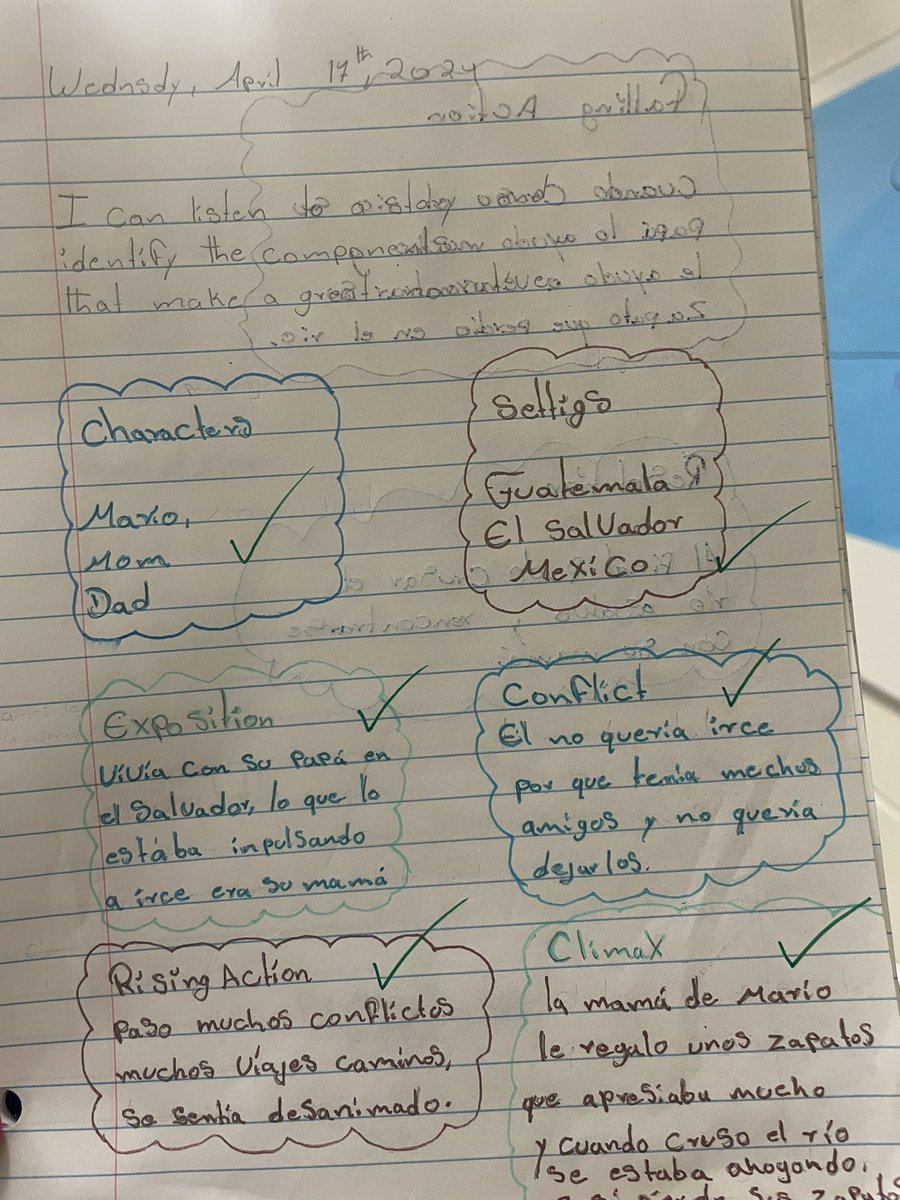 Wednsdy, April 17th, 2024
I can listen to a story
identify the components
that make a great
Characters
Mario,
Mom
Dad
Settigs
Guatemala
El Salvador
Mexico
Exposition
Vivía con su papá en
el Salvador, lo que lo
estába inpulsando
a irce era su mamá
Conflict
El no queria irce
por que tenia muchos
amigos y no queria
dejarlos.
Rising Action
Paso muchos conflictos
muchos Viajes caminos,
se sentia desanimado.
Climax
la mamá de Mario
le regalo unos zapatos
que apresiaba mucho
y cuando cruso el río
se estaba ahogando,